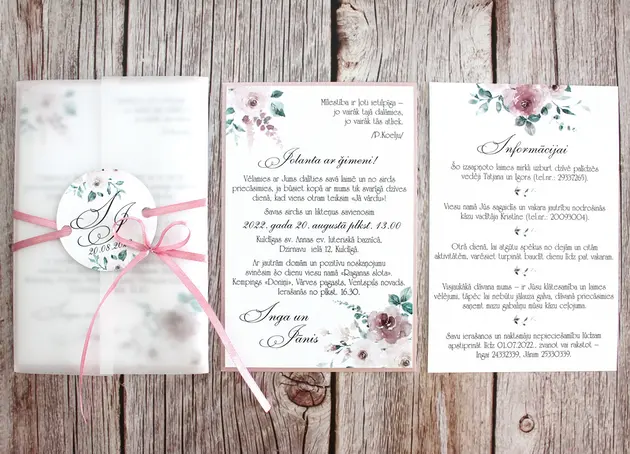 S J
20.08.20
Mīlestība ir ļoti ietilpīga –
jo vairāk tajā dalāmies,
jo vairāk tās atliek.
/P.Koelju/
Jolanta ar ģimeni!
Vēlamies ar Jums dalīties savā laimē un no sirds
priecāsimies, ja būsiet kopā ar mums tik svarīgā dzīves
dienā, kad viens otram teiksim «Jā vārdu»!
Savas sirds un likteņus savienosim
2022. gada 20. augustā plkst. 13.00
Kuldīgas sv. Annas ev. luteriskā baznīcā,
Dzirnavu ielā 12, Kuldīgā.
Ar jautrām domām un pozitīvu noskaņojumu
svinēsim šo dienu viesu namā «Raganas slota».
Kempings «Doniņi», Vārves pagasts, Ventspils novads.
Ierašanās no plkst. 16.30.
Inga un
Jānis
Informācijai
Šo izsapņoto laimes mirkli uzburt dzīvē palīdzēs
vedēji Tatjana un Igors (tel.nr.: 29337265).
Viesu namā Jūs sagaidīs un vakara jautrību nodrošinās
kāzu vadītāja Kristīne (tel.nr.: 20093004).
Otrā dienā, lai atgūtu spēkus no dejām un citām
aktivitātēm, varēsiet turpināt baudīt dienu līdz pat vakaram.
Visjaukākā dāvana mums – ir Jūsu klātesamība un laimes
vēlējumi, tāpēc lai nebūtu jālauza galva, dāvanā priecāsimies
saņemt mazu gabaliņu mūsu kāzu ceļojuma.
Savu ierašanos un naktsmāju nepieciešamību lūdzam
apstiprināt līdz 01.07.2022., zvanot vai rakstot –
Ingai 24332339, Jānim 27330339.